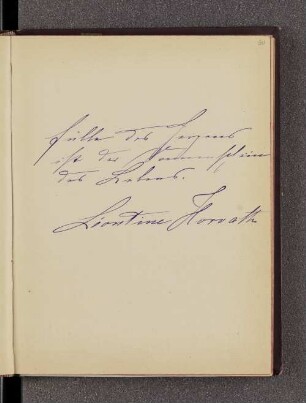 Fülle des Herzens
ist der Sonnenschein
des Lebens.
Leontine Horvath